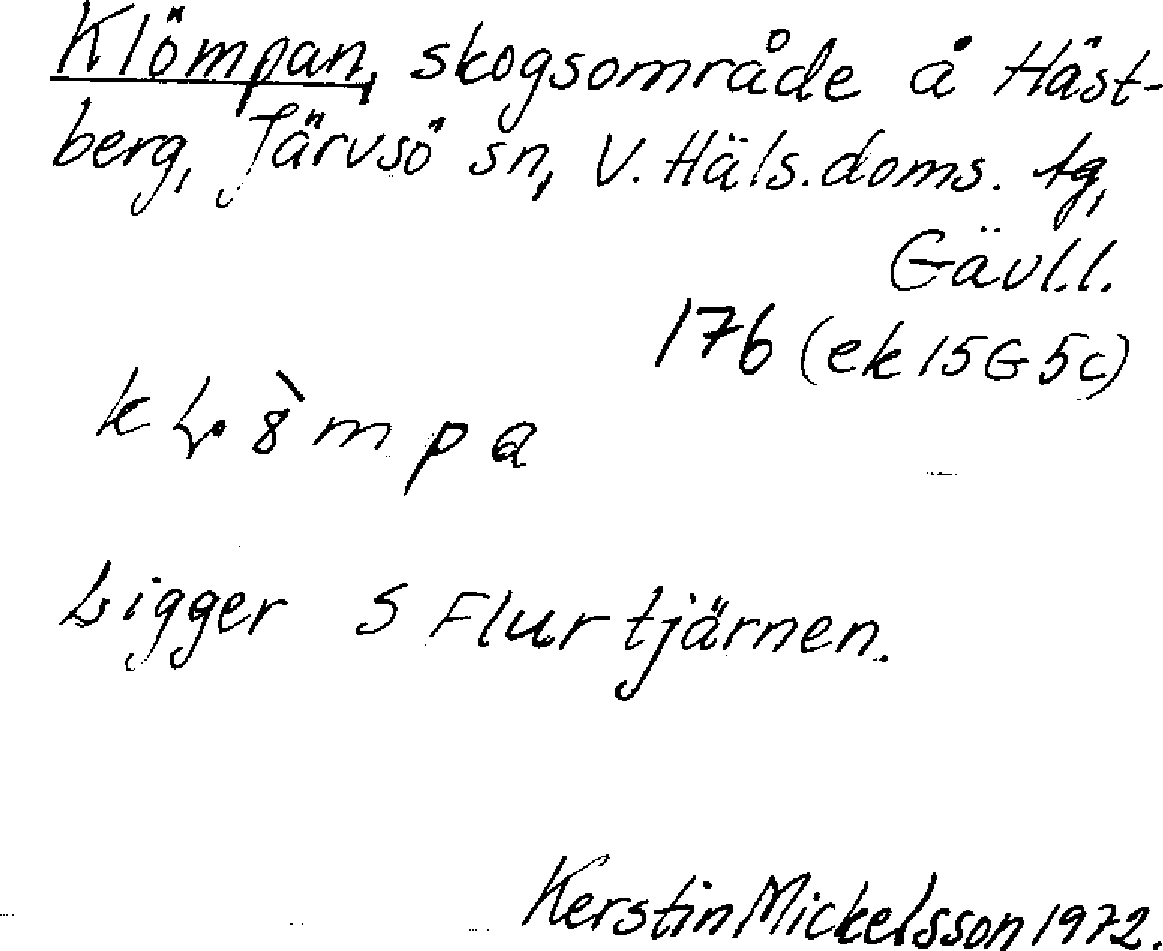 Klömpan, skogsområde å Häst-
berg, Järvsö sn, V. Häls. doms. tg,
Gävl.l.
176 (ek 15G 5c)
Ligger S Flurtjärnen.
Kerstin Mickelsson 1972.